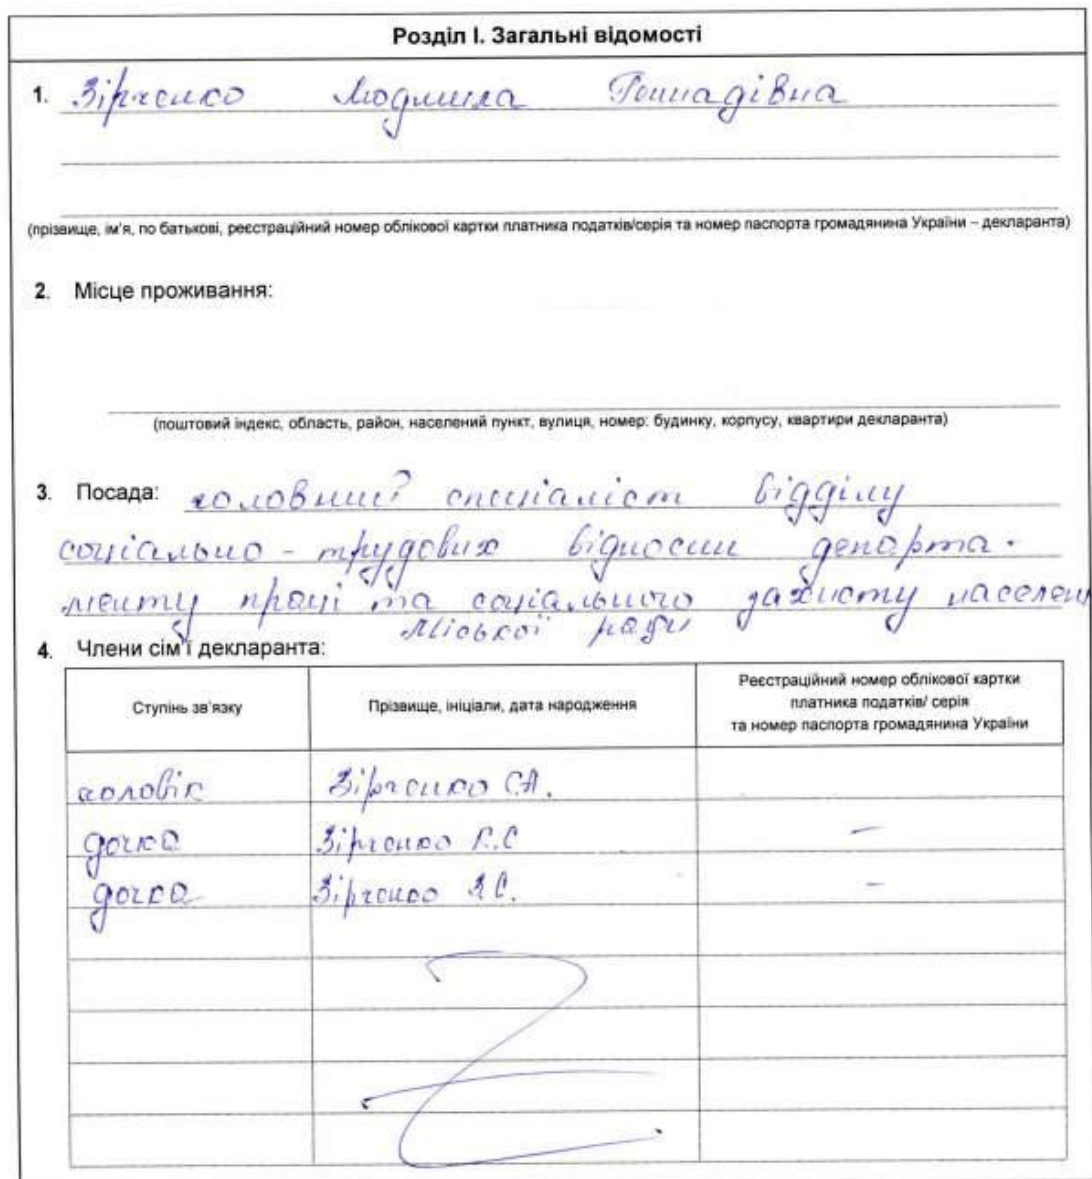 Розділ І. Загальні відомості
1. Зірченко Людмила Геннадівна
(прізвище, ім'я, по батькові, реєстраційний номер облікової картки платника податків/серія та номер паспорта громадянина України – декларанта)
2. Місце проживання:
(поштовий індекс, область, район, населений пункт, вулиця, номер: будинку, корпусу, квартири декларанта)
3. Посада: головний спеціаліст відділу
соціально - трудових відносин департа-
менту праці та соціального захисту населен
міської ради
4. Члени сім'ї декларанта:
Ступінь зв'язку
Прізвище, ініціали, дата народження
Реєстраційний номер облікової картки
платника податків/ серія
та номер паспорта громадянина України
чоловік Зірченко С.А.
дочка Зірченко К.С -
дочка Зірченко Я.С. -